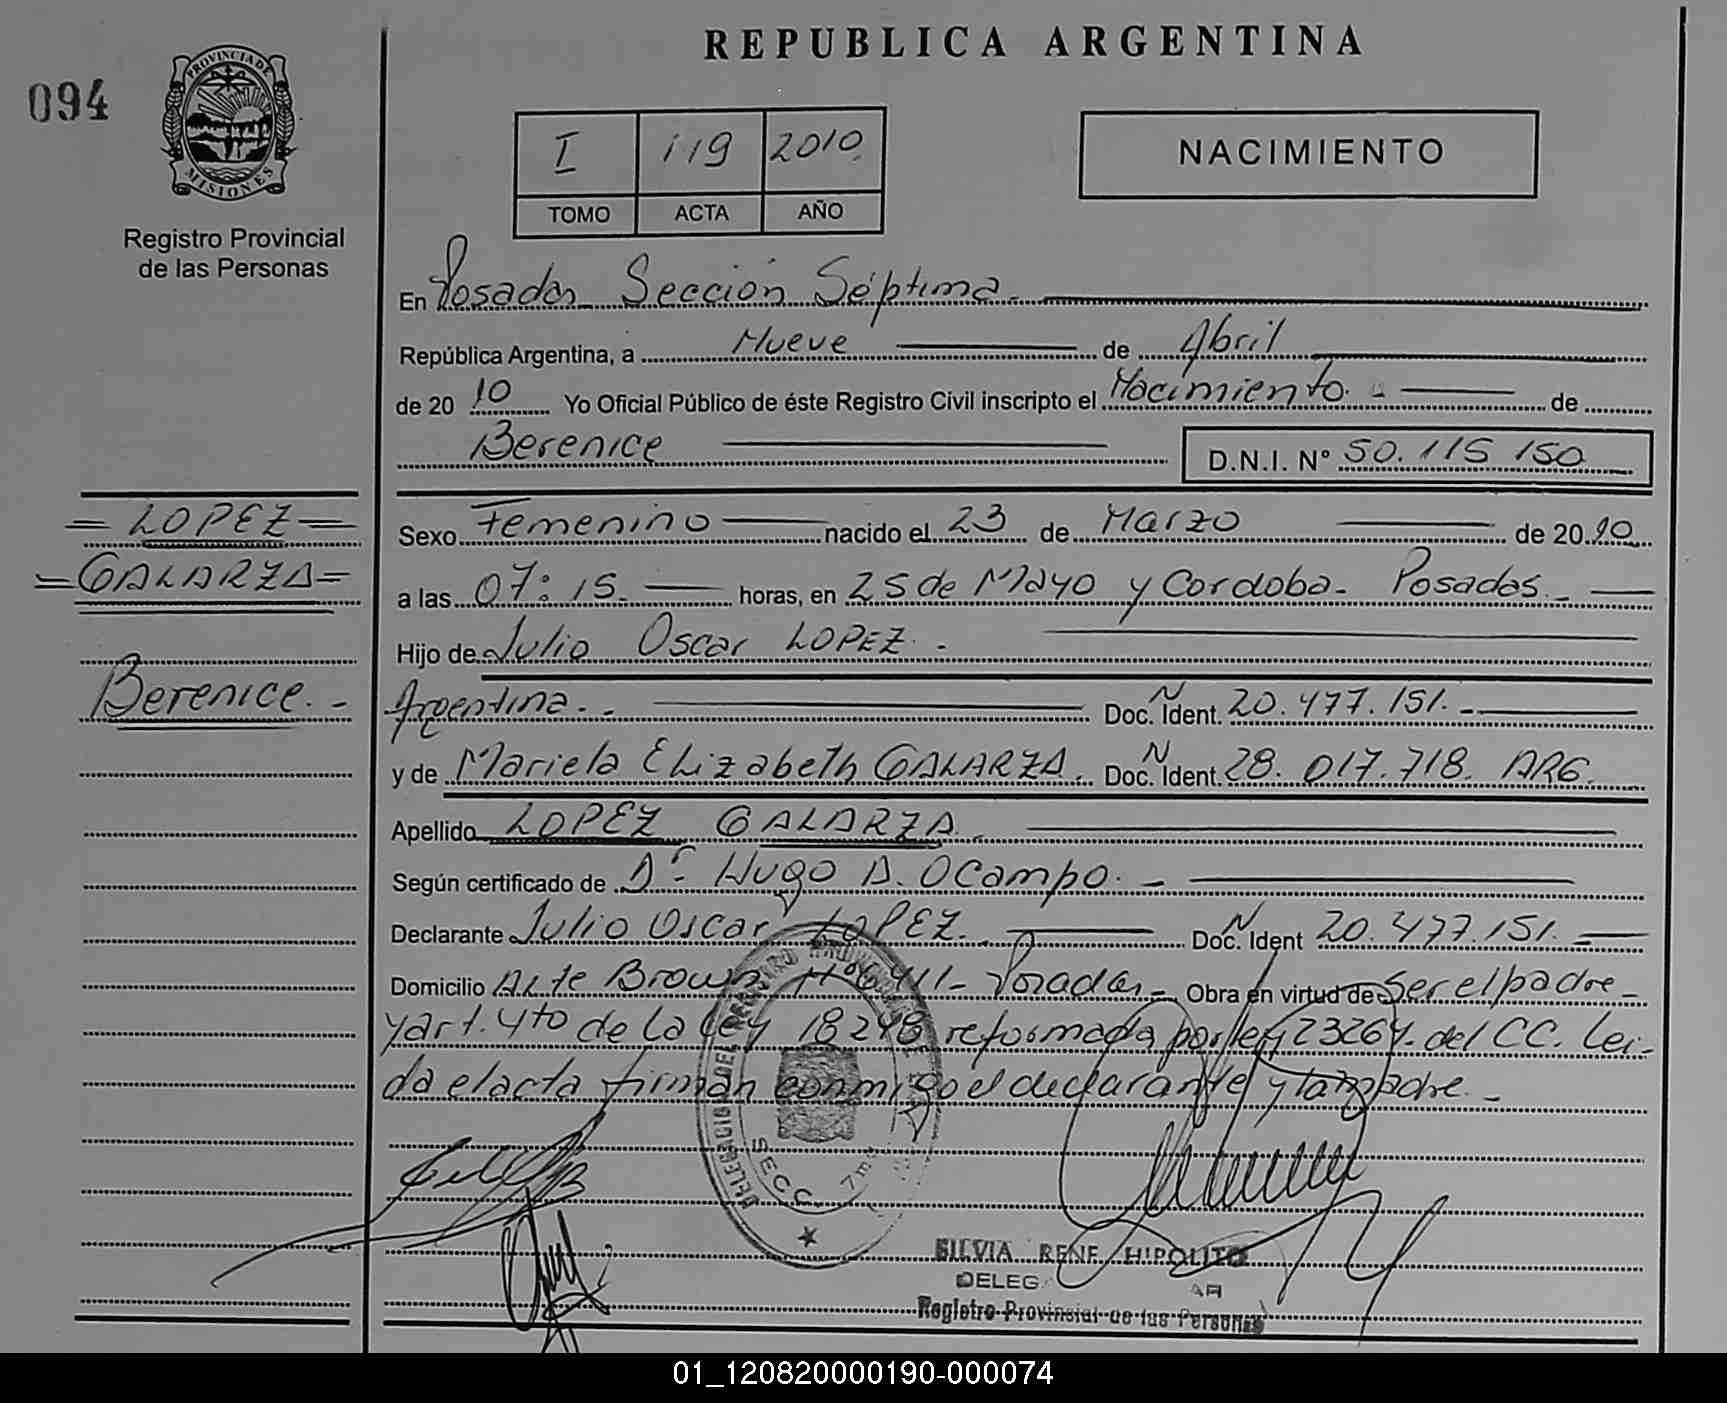 REPUBLICA ARGENTINA
094
PROVINCIA DE
MISIONES
Registro Provincial
de las Personas
I 119 2010
TOMO ACTA AÑO
NACIMIENTO
En Posadas Sección Séptima.
República Argentina, a Nueve de Abril
de 20 10 Yo Oficial Público de éste Registro Civil inscripto el Nacimiento. - de
Berenice D.N.I. N° 50.115 150
= LOPEZ =
= GALARZA =
Berenice. -
Sexo Femenino nacido el 23 de Marzo de 20 10
a las 07:15. horas, en 25 de Mayo y Cordoba. Posadas. -
Hijo de Julio Oscar LOPEZ. -
Argentina. - Doc. N Ident. 20.477.151. -
y de Mariela Elizabeth GALARZA. Doc. N Ident. 28.017.718. ARG.
Apellido LOPEZ GALARZA. -
Según certificado de Dr. Hugo D. Ocampo. -
Declarante Julio Oscar LOPEZ. Doc. N Ident 20.477.151. -
Domicilio Alte Brown N° Posadas - Obra en virtud de Ser el padre -
y art. 4to de la Ley 18248 reformada por ley 23264. del CC. Lei-
da el acta firman conmigo el declarante y la madre. -
DELEGACION DEL REGISTRO PROVINCIAL DE LAS
SECC. 7ma
SILVIA RENE HIPOLITO
DELEG AR
Registro Provincial de las Personas
01_120820000190-000074